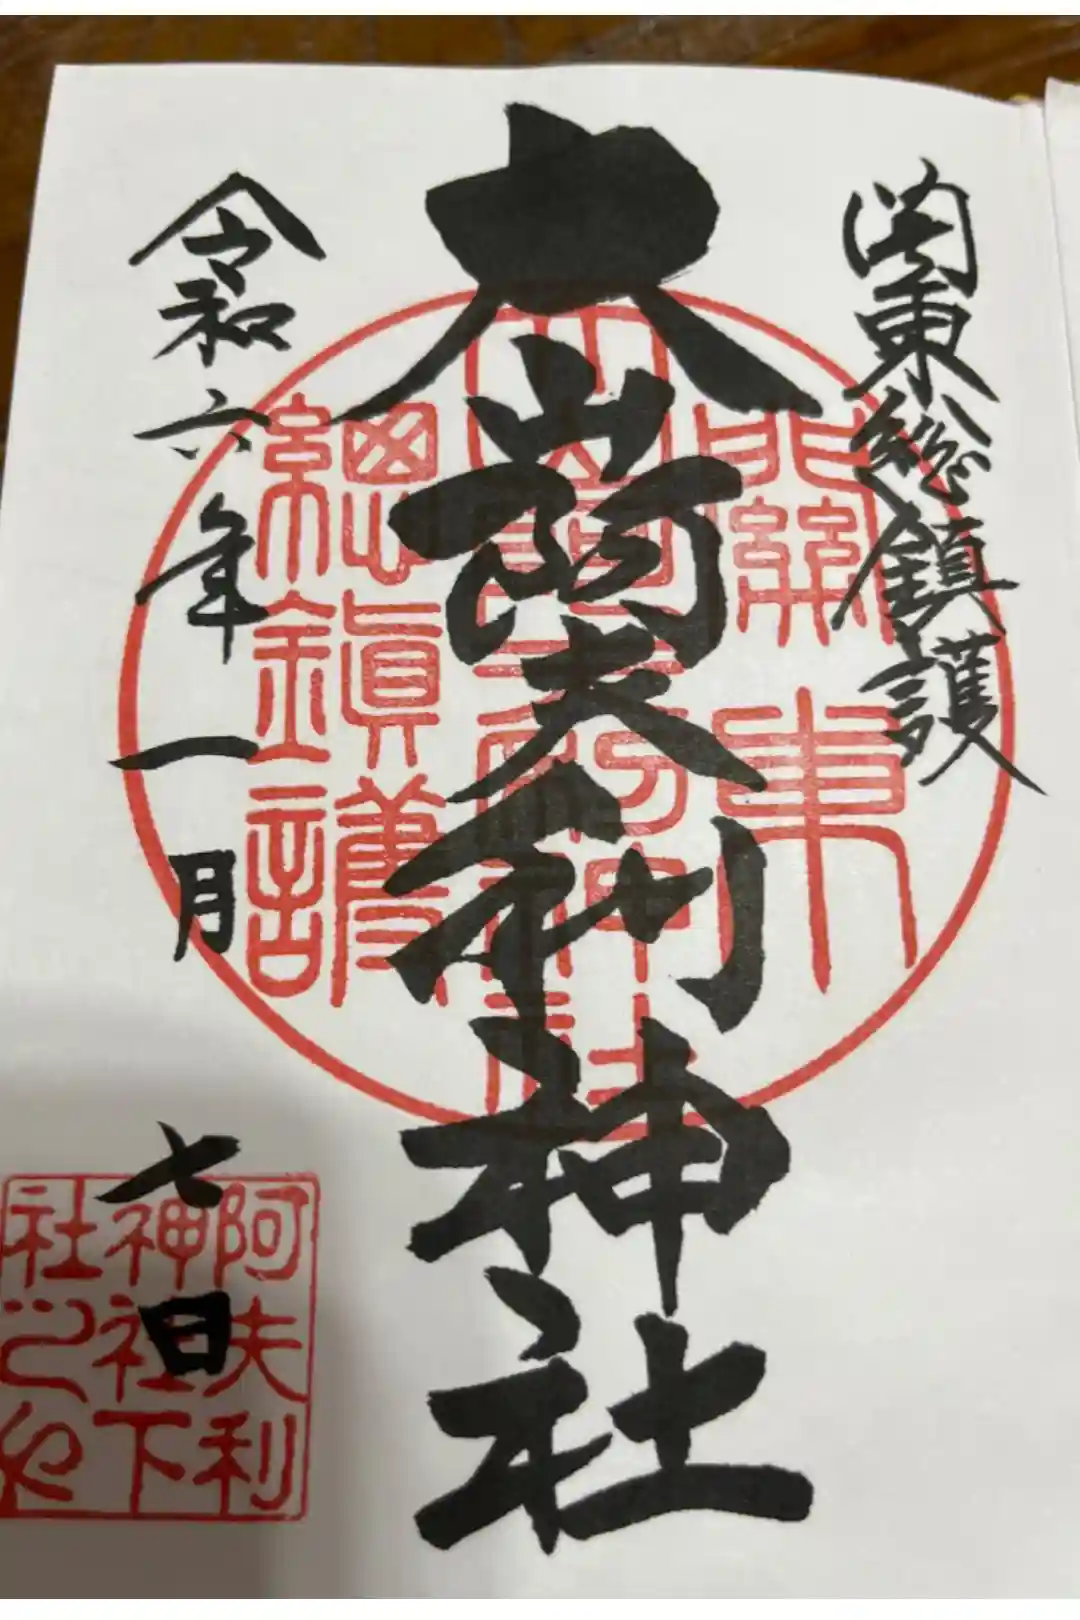 関東総鎮護
大山阿夫利神社
令和六年一月七日
關東
總鎭護
阿夫利
神社下
社之印